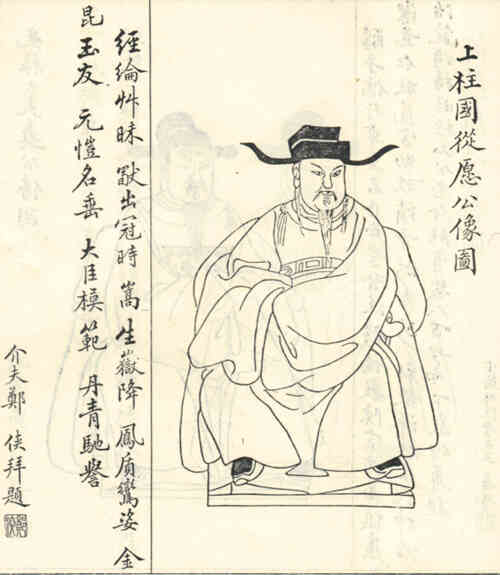 上柱國從愿公像圖
經綸艸昧 猷出冠時 嵩生嶽降 鳳質鸞姿 金
昆玉友 元愷名垂 大臣模範 丹青馳譽
介夫鄭 俠拜題